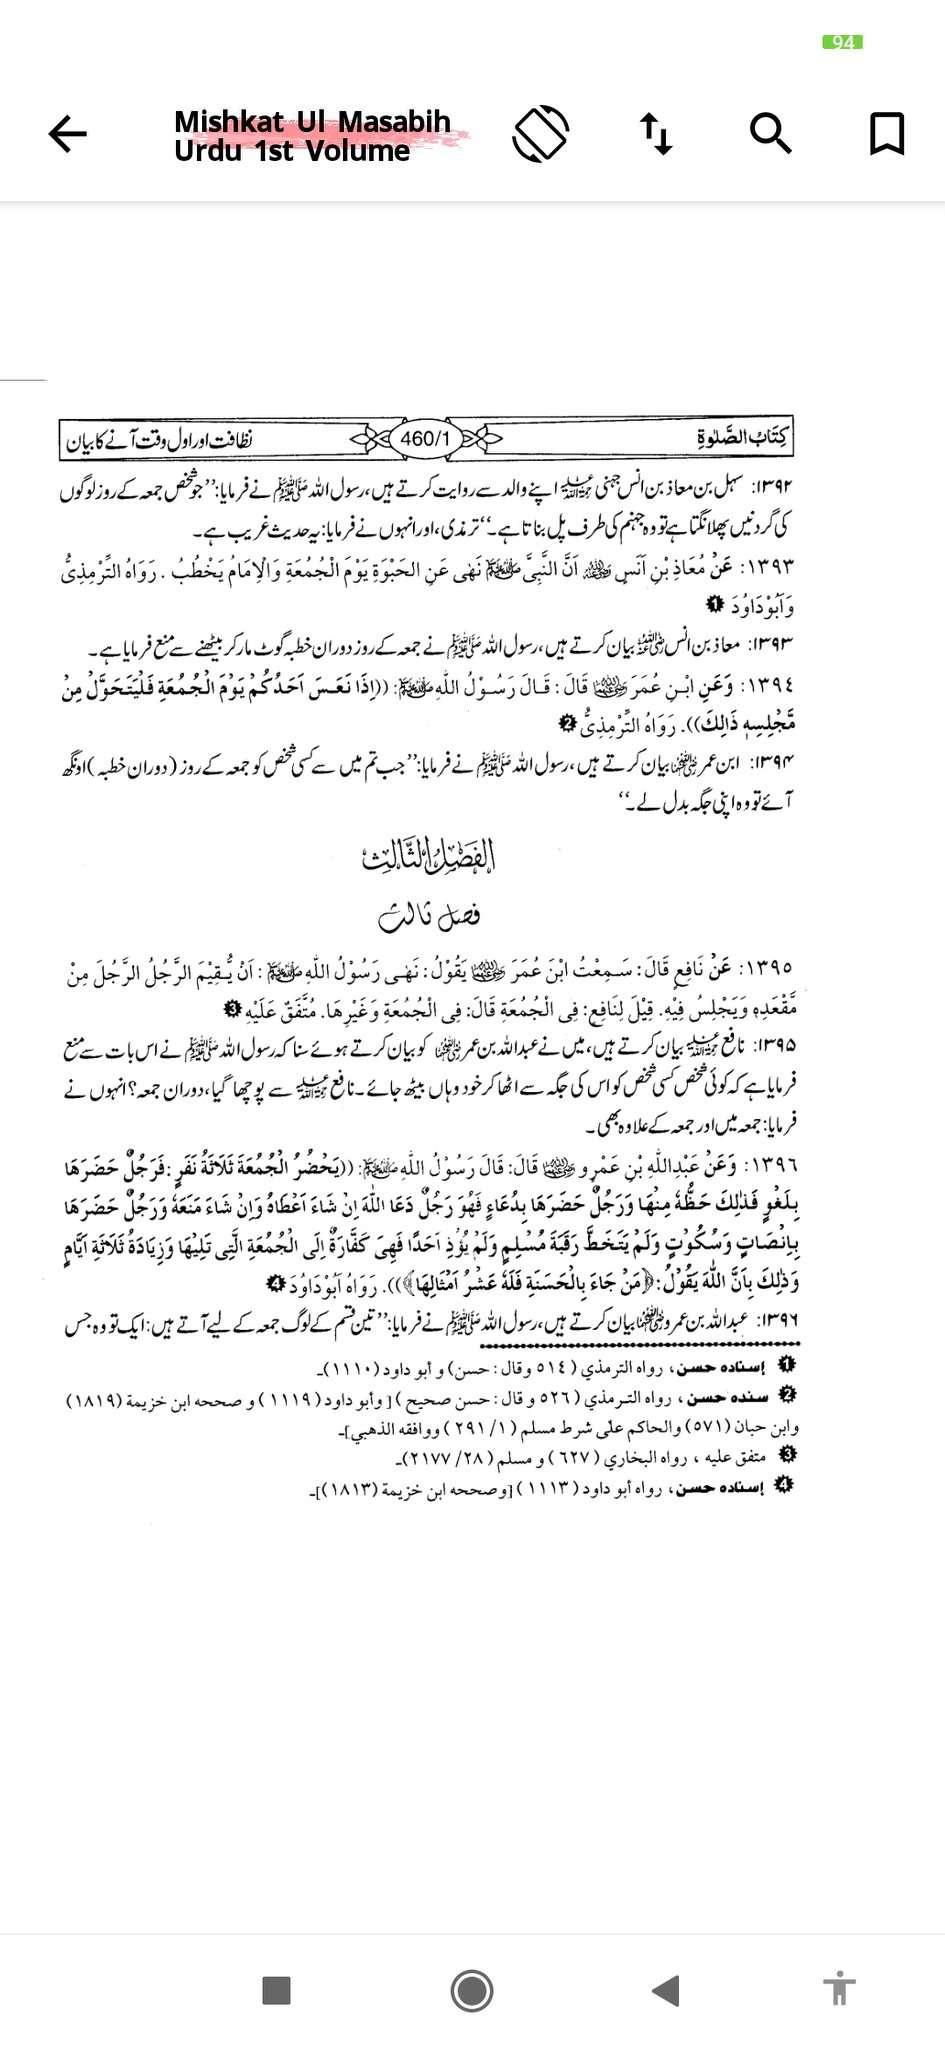 94
Mishkat Ul Masabih
Urdu 1st Volume
کِتَابُ الصَّلٰوۃِ 460/1 نظافت اور اول وقت آنے کا بیان
۱۳۹۲: سہل بن معاذ بن انس جہنی رحمہ اللہ اپنے والد سے روایت کرتے ہیں، رسول اللہ ﷺ نے فرمایا: ’’جو شخص جمعہ کے روز لوگوں
کی گردنیں پھلانگتا ہے تو وہ جہنم کی طرف پل بناتا ہے۔‘‘ ترمذی، اور انہوں نے فرمایا: یہ حدیث غریب ہے۔
١٣٩٣: عَنْ مُعَاذِ بْنِ اَنَسٍ رضی اللہ عنہ اَنَّ النَّبِیَّ ﷺ نَهٰی عَنِ الْحَبْوَةِ یَوْمَ الْجُمُعَةِ وَالْاِمَامُ یَخْطُبُ. رَوَاهُ التِّرْمِذِیُّ
وَاَبُوْدَاوُدَ ❶
۱۳۹۳: معاذ بن انس رضی اللہ عنہ بیان کرتے ہیں، رسول اللہ ﷺ نے جمعہ کے روز دوران خطبہ گوٹ مار کر بیٹھنے سے منع فرمایا ہے۔
١٣٩٤: وَعَنِ ابْنِ عُمَرَ رضی اللہ عنہما قَالَ: قَالَ رَسُوْلُ اللّٰهِ ﷺ: ((اِذَا نَعَسَ اَحَدُكُمْ یَوْمَ الْجُمُعَةِ فَلْیَتَحَوَّلْ مِنْ
مَّجْلِسِهٖ ذَالِكَ)). رَوَاهُ التِّرْمِذِیُّ ❷
۱۳۹۴: ابن عمر رضی اللہ عنہما بیان کرتے ہیں، رسول اللہ ﷺ نے فرمایا: ’’جب تم میں سے کسی شخص کو جمعہ کے روز (دوران خطبہ) اونگھ
آئے تو وہ اپنی جگہ بدل لے۔‘‘
الْفَصْلُ الثَّالِثُ
فصل ثالث
١٣٩٥: عَنْ نَافِعٍ قَالَ: سَمِعْتُ ابْنَ عُمَرَ رضی اللہ عنہما یَقُوْلُ: نَهٰی رَسُوْلُ اللّٰهِ ﷺ: اَنْ یُّقِیْمَ الرَّجُلُ الرَّجُلَ مِنْ
مَّقْعَدِهٖ وَیَجْلِسُ فِیْهِ. قِیْلَ لِنَافِعٍ: فِی الْجُمُعَةِ قَالَ: فِی الْجُمُعَةِ وَغَیْرِهَا. مُتَّفَقٌ عَلَیْهِ ❸
۱۳۹۵: نافع رحمہ اللہ بیان کرتے ہیں، میں نے عبداللہ بن عمر رضی اللہ عنہما کو بیان کرتے ہوئے سنا کہ رسول اللہ ﷺ نے اس بات سے منع
فرمایا ہے کہ کوئی شخص کسی شخص کو اس کی جگہ سے اٹھا کر خود وہاں بیٹھ جائے۔ نافع رحمہ اللہ سے پوچھا گیا، دوران جمعہ؟ انہوں نے
فرمایا: جمعہ میں اور جمعہ کے علاوہ بھی۔
١٣٩٦: وَعَنْ عَبْدِاللّٰهِ بْنِ عَمْرٍو رضی اللہ عنہما قَالَ: قَالَ رَسُوْلُ اللّٰهِ ﷺ: ((یَحْضُرُ الْجُمُعَةَ ثَلَاثَةُ نَفَرٍ: فَرَجُلٌ حَضَرَهَا
بِلَغْوٍ فَذٰلِكَ حَظُّهٗ مِنْهَا وَرَجُلٌ حَضَرَهَا بِدُعَاءٍ فَهُوَ رَجُلٌ دَعَا اللّٰهَ اِنْ شَاءَ اَعْطَاهُ وَاِنْ شَاءَ مَنَعَهٗ وَرَجُلٌ حَضَرَهَا
بِاِنْصَاتٍ وَسُكُوْتٍ وَلَمْ یَتَخَطَّ رَقَبَةَ مُسْلِمٍ وَلَمْ یُؤْذِ اَحَدًا فَهِیَ كَفَّارَةٌ اِلَی الْجُمُعَةِ الَّتِی تَلِیْهَا وَزِیَادَةُ ثَلَاثَةِ اَیَّامٍ
وَذٰلِكَ بِاَنَّ اللّٰهَ یَقُوْلُ: ﴿مَنْ جَاءَ بِالْحَسَنَةِ فَلَهٗ عَشْرُ اَمْثَالِهَا﴾)). رَوَاهُ اَبُوْدَاوُدَ ❹
۱۳۹۶: عبداللہ بن عمرو رضی اللہ عنہما بیان کرتے ہیں، رسول اللہ ﷺ نے فرمایا: ’’تین قسم کے لوگ جمعہ کے لیے آتے ہیں: ایک تو وہ جس
❶ إسناده حسن، رواه الترمذي (٥١٤ وقال: حسن) و أبو داود (١١١٠)۔
❷ سنده حسن، رواه الترمذي (٥٢٦ و قال: حسن صحيح) [وأبو داود (١١١٩) و صححه ابن خزيمة (١٨١٩)
وابن حبان (٥٧١) والحاكم على شرط مسلم (١/ ٢٩١) ووافقه الذهبي]۔
❸ متفق عليه، رواه البخاري (٦٢٧) و مسلم (٢٨/ ٢١٧٧)۔
❹ إسناده حسن، رواه أبو داود (١١١٣) [وصححه ابن خزيمة (١٨١٣)]۔